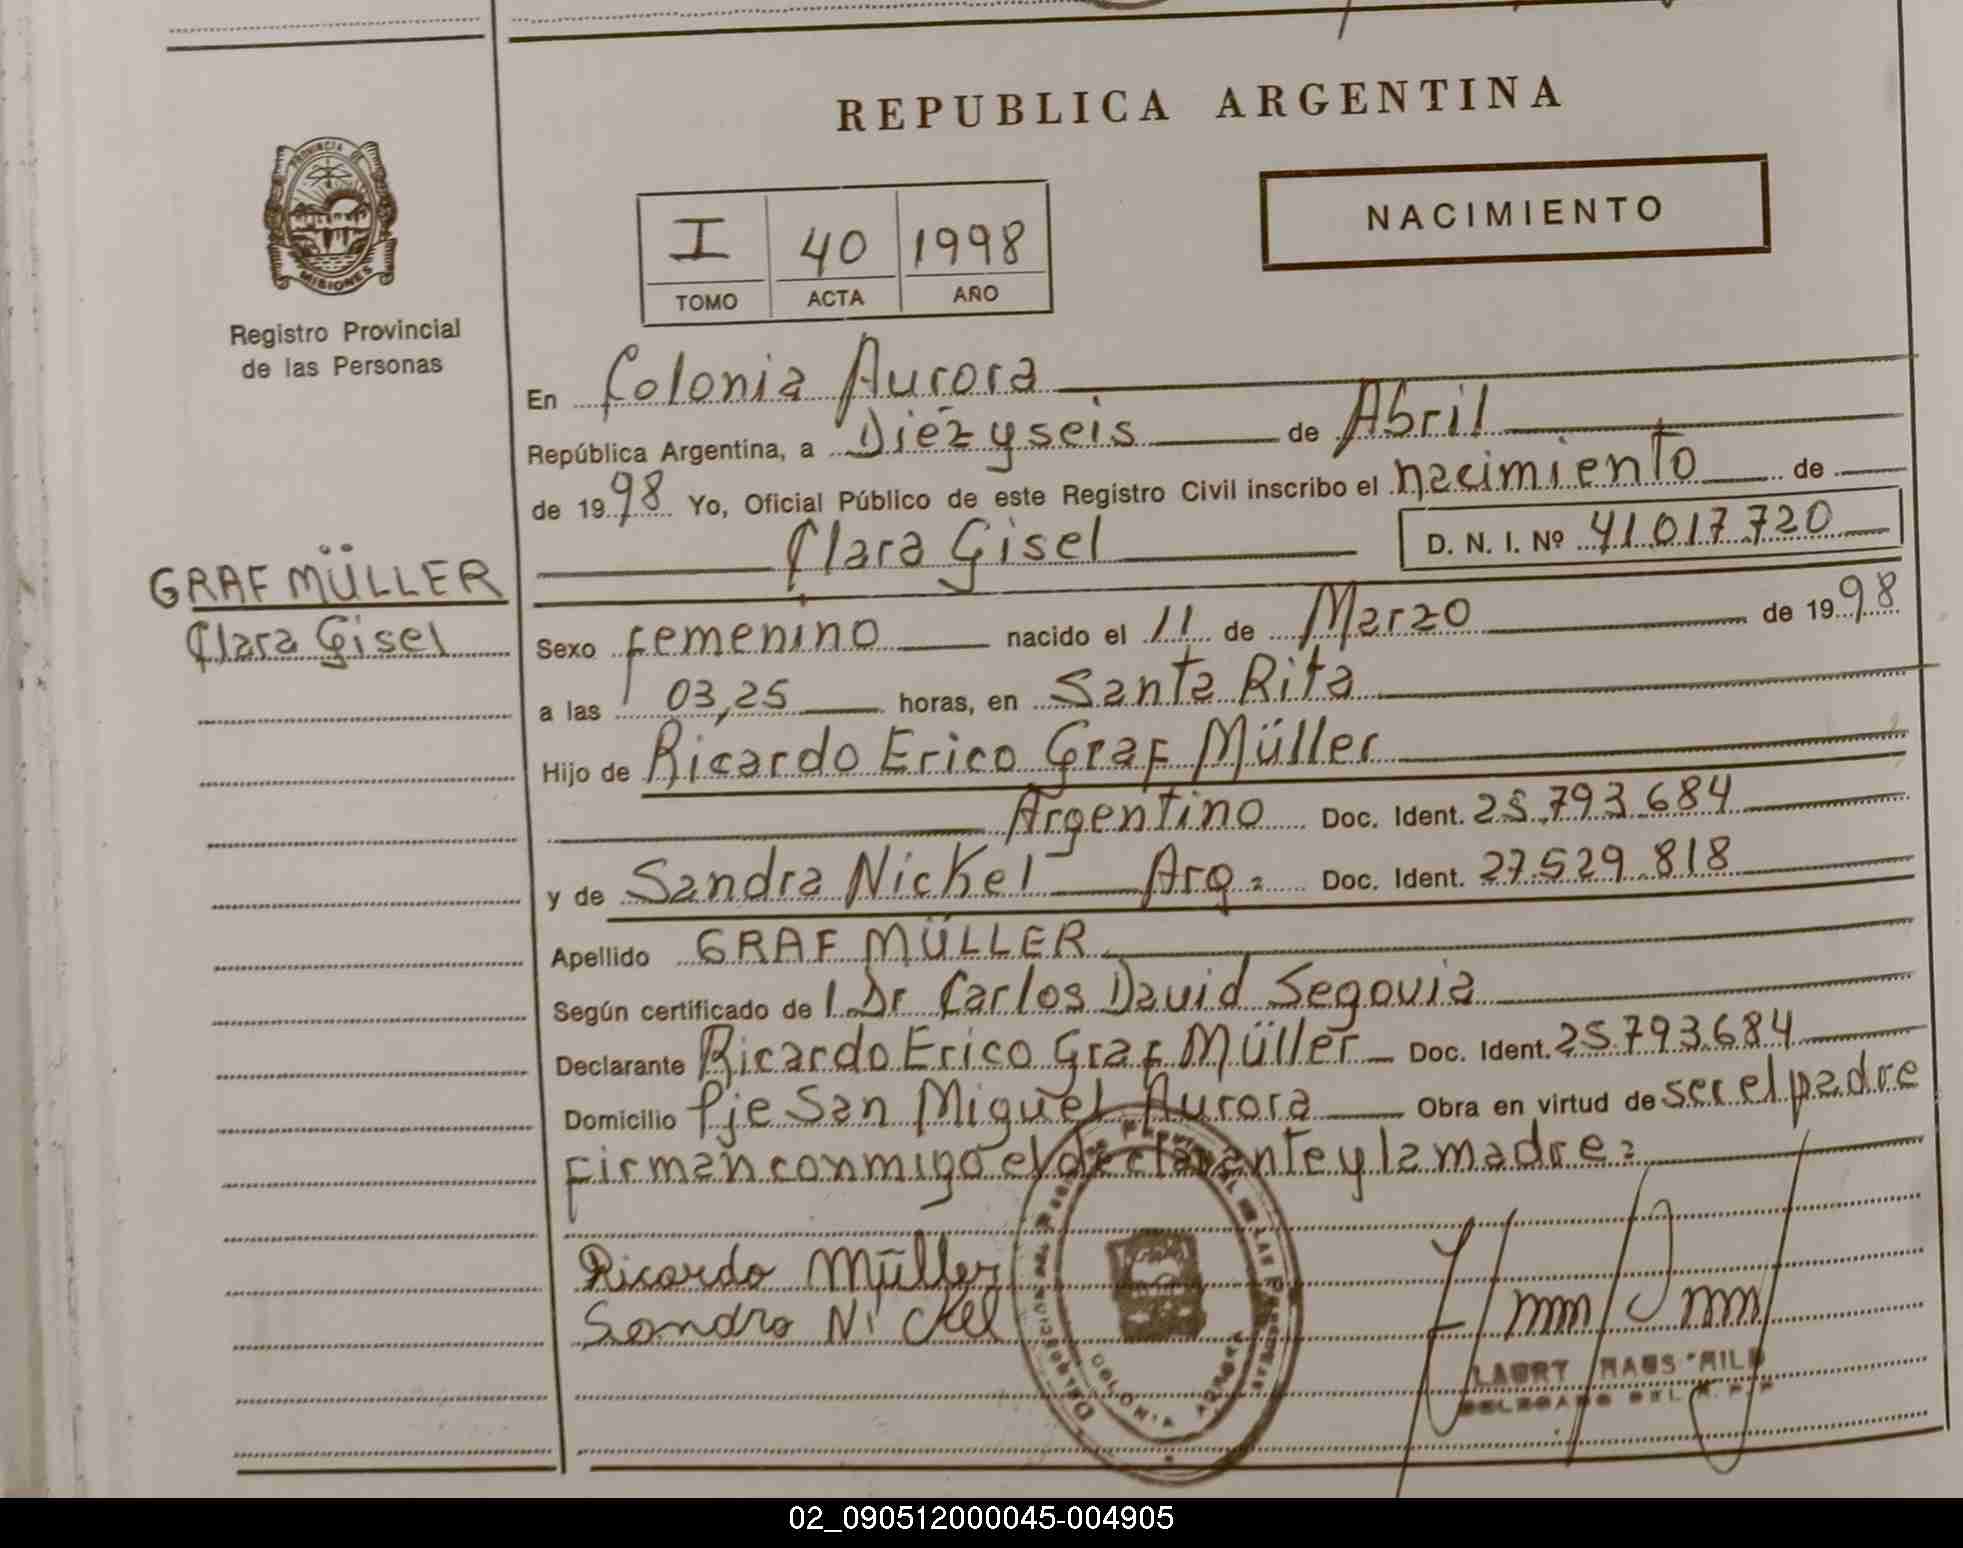 REPUBLICA ARGENTINA
PROVINCIA DE
MISIONES
Registro Provincial
de las Personas
NACIMIENTO
I 40 1998
TOMO ACTA AÑO
En Colonia Aurora
República Argentina, a Diézyseis de Abril
de 1998 Yo, Oficial Público de este Registro Civil inscribo el nacimiento de
Clara Gisel D. N. I. Nº 41.017.720
GRAF MÜLLER
Clara Gisel
Sexo Femenino nacido el 11 de Marzo de 1998
a las 03,25 horas, en Santa Rita
Hijo de Ricardo Erico Graf Müller
Argentino Doc. Ident. 25.793.684
y de Sandra Nickel Arg. Doc. Ident. 27.529.818
Apellido GRAF MÜLLER
Según certificado de l Dr Carlos David Segovia
Declarante Ricardo Erico Graf Müller Doc. Ident. 25.793.684
Domicilio Pje San Miguel Aurora Obra en virtud de ser el padre
Firman conmigo el declarante y la madre
Ricardo Müller
Sandra Nickel
COLONIA AURORA
DELEGADO DEL R.P.P
02_090512000045-004905